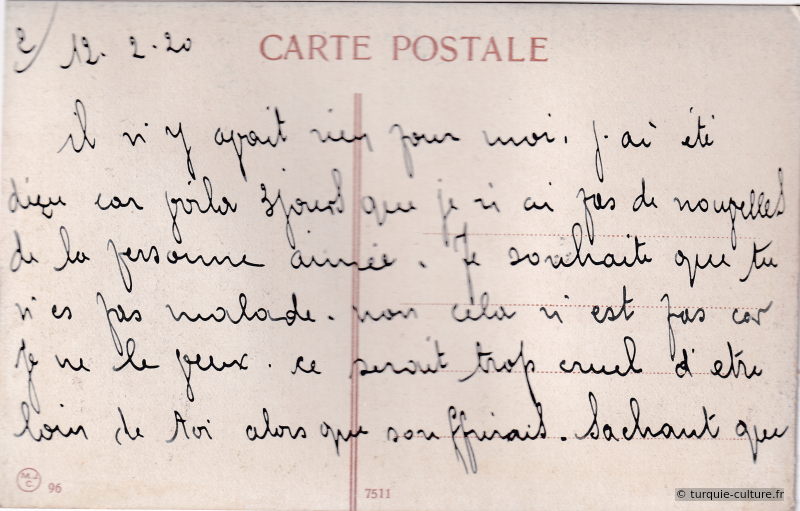 2
12.2.20
CARTE POSTALE
il n'y avait rien pour moi. j'ai été
déçu car voila 3 jours que je n'ai pas de nouvelles
de la personne aimée. Je souhaite que tu
n'es pas malade. non cela n'est pas car
je ne le veux. ce serait trop cruel d'etre
loin de toi alors que souffrirais. Sachant que
M.J.C. 96
7511
© turquie-culture.fr